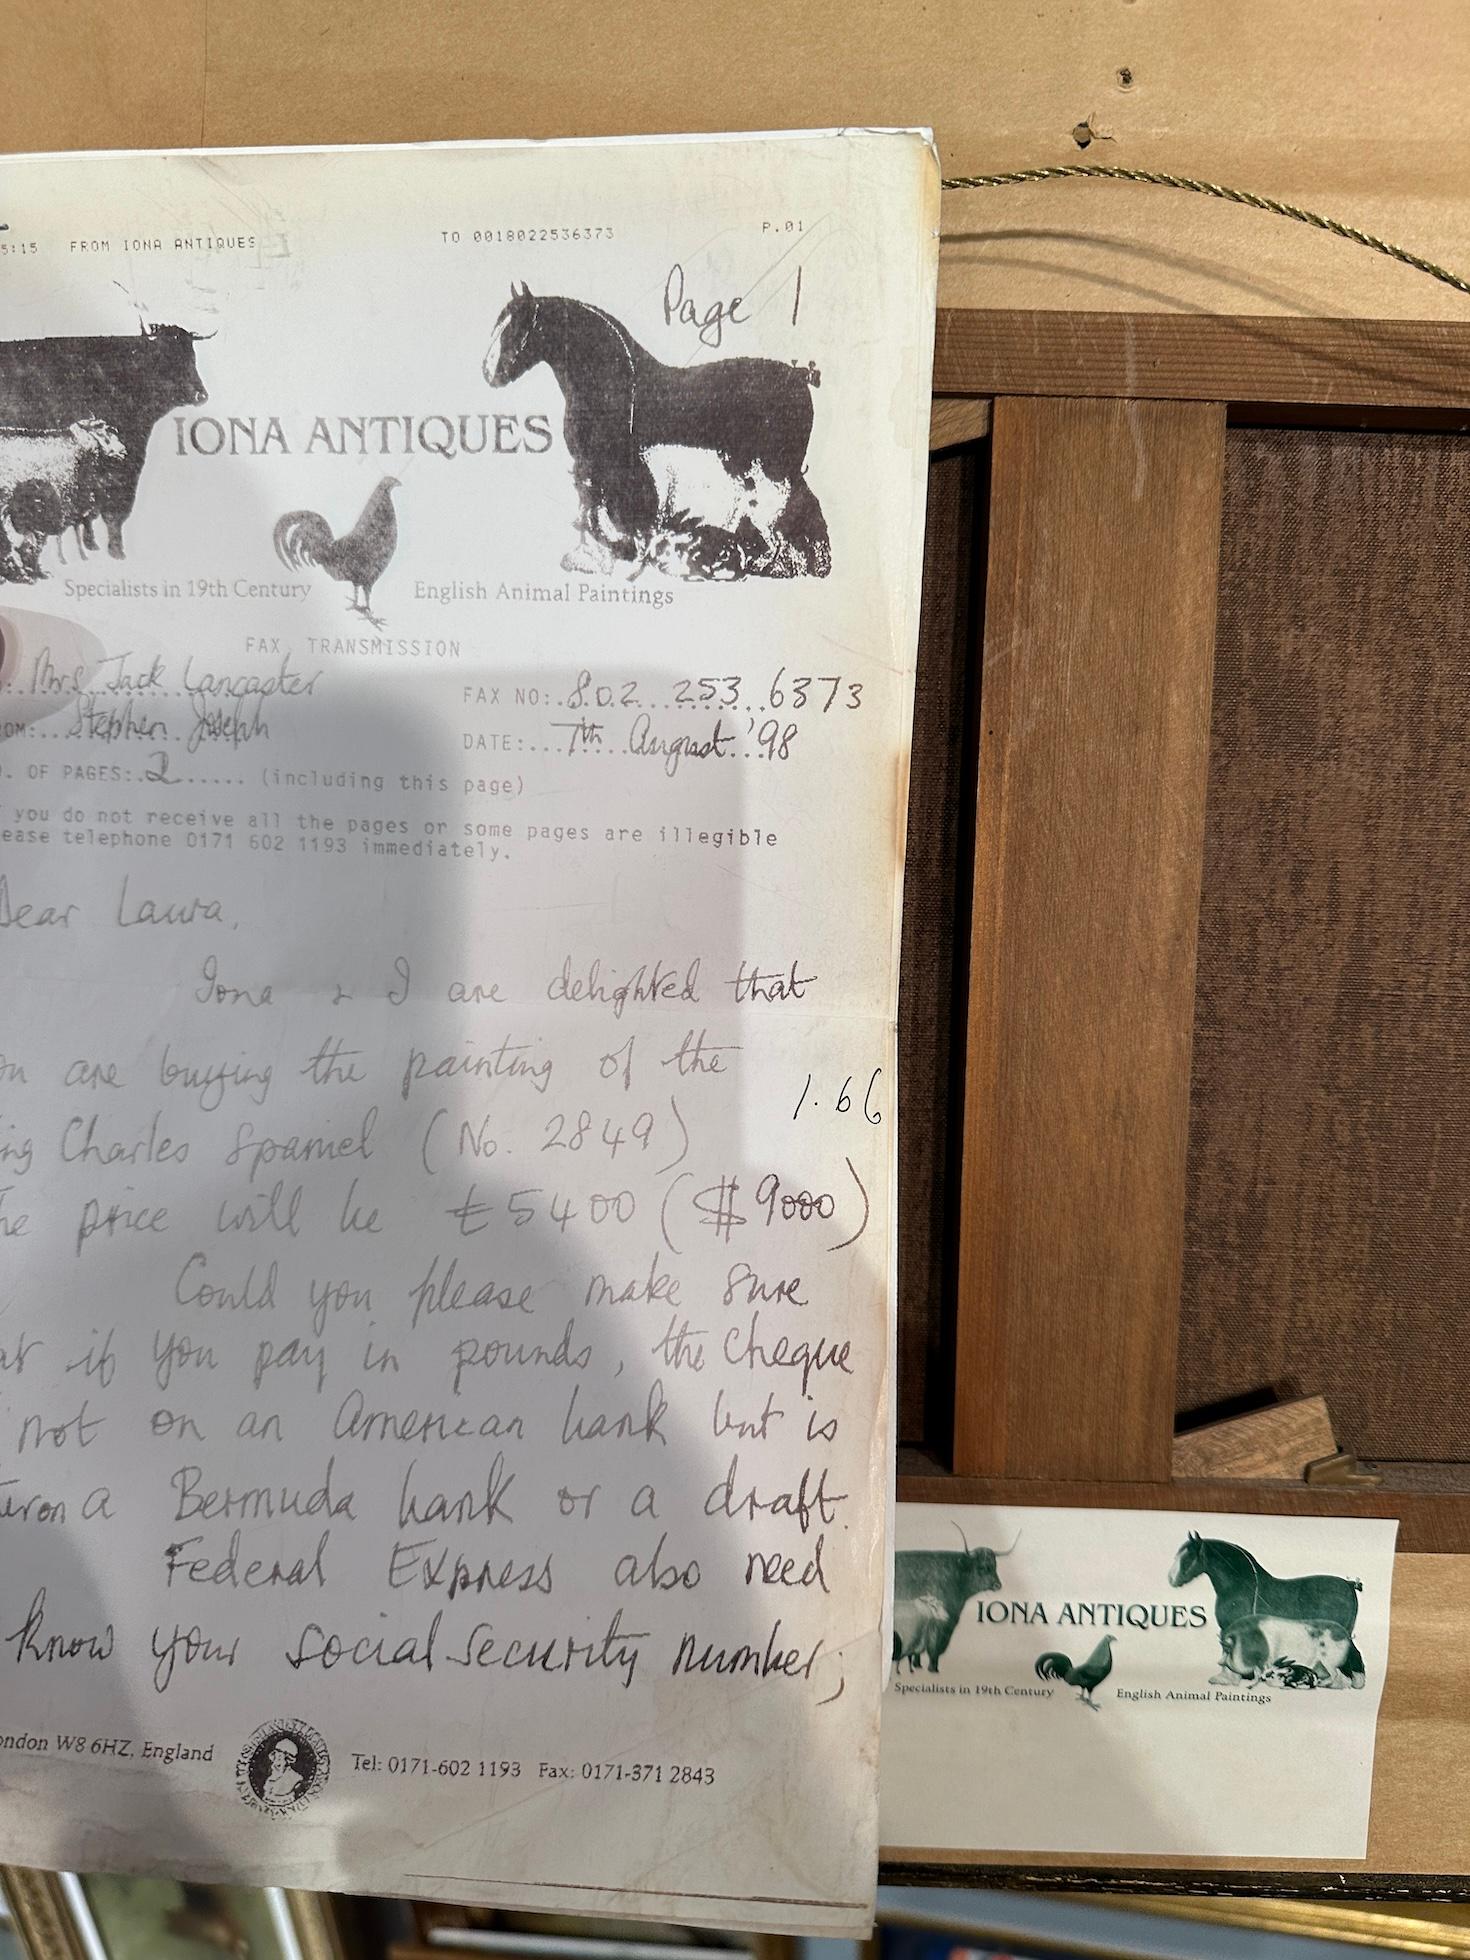 5:15 FROM IONA ANTIQUES TO 0018022536373 P.01
Page 1
IONA ANTIQUES
Specialists in 19th Century English Animal Paintings
FAX TRANSMISSION
Mrs Jack Lancaster
FAX NO:.802 253 6373
OM:...Stephen Joseph
DATE:...7th August '98
. OF PAGES:.2...... (including this page)
you do not receive all the pages or some pages are illegible
ease telephone 0171 602 1193 immediately.
Dear Laura,
Iona & I are delighted that
ou are buying the painting of the
1.66
ing Charles Spaniel (No. 2849)
he price will be £5400 ($9000)
Could you please make sure
at if you pay in pounds, the cheque
not on an American bank but is
a Bermuda bank or a draft.
Federal Express also need
know your social security number;
ondon W8 6HZ, England Tel: 0171-602 1193 Fax: 0171-371 2843
IONA ANTIQUES
Specialists in 19th Century English Animal Paintings